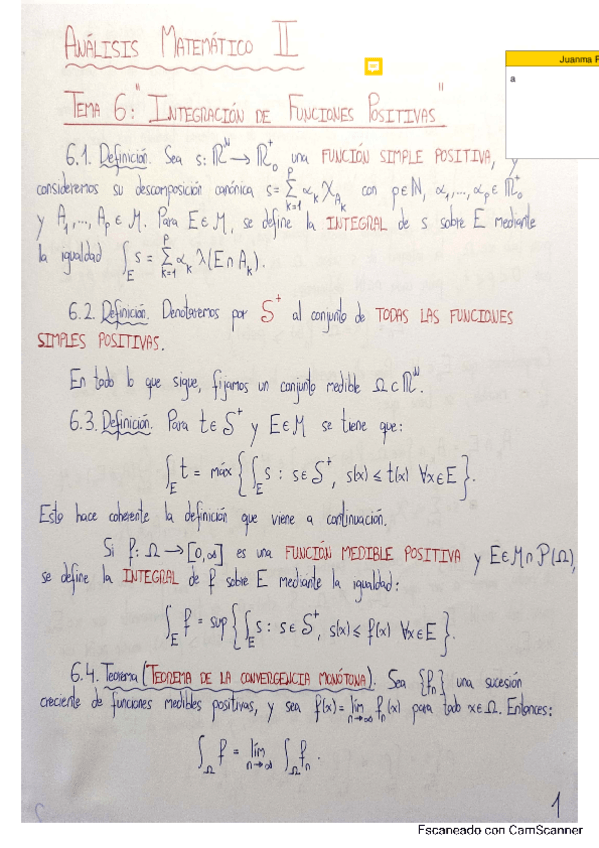 ANÁLISIS MATEMÁTICO II
Juanma
a
TEMA 6: "INTEGRACIÓN DE FUNCIONES POSITIVAS"
6.1. Definición. Sea s: ℝᴺ → ℝ₀⁺ una FUNCIÓN SIMPLE POSITIVA, y
consideremos su descomposición canónica s = Σₖ₌₁ᵖ αₖ χ_Aₖ con p∈ℕ, α₁,...,αₚ∈ℝ₀⁺
y A₁,...,Aₚ∈M. Para E∈M, se define la INTEGRAL de s sobre E mediante
la igualdad ∫_E s = Σₖ₌₁ᵖ αₖ λ(E∩Aₖ).
6.2. Definición. Denotaremos por S⁺ al conjunto de TODAS LAS FUNCIONES
SIMPLES POSITIVAS.
En todo lo que sigue, fijamos un conjunto medible Ω⊂ℝᴺ.
6.3. Definición. Para t∈S⁺ y E∈M se tiene que:
∫_E t = máx{∫_E s : s∈S⁺, s(x) ≤ t(x) ∀x∈E}.
Esto hace coherente la definición que viene a continuación.
Si f: Ω → [0,∞] es una FUNCIÓN MEDIBLE POSITIVA y E∈M∩P(Ω),
se define la INTEGRAL de f sobre E mediante la igualdad:
∫_E f = sup{∫_E s : s∈S⁺, s(x) ≤ f(x) ∀x∈E}.
6.4. Teorema (TEOREMA DE LA CONVERGENCIA MONÓTONA). Sea {fₙ} una sucesión
creciente de funciones medibles positivas, y sea f(x) = lím_{n→∞} fₙ(x) para todo x∈Ω. Entonces:
∫_Ω f = lím_{n→∞} ∫_Ω fₙ.
1
Escaneado con CamScanner